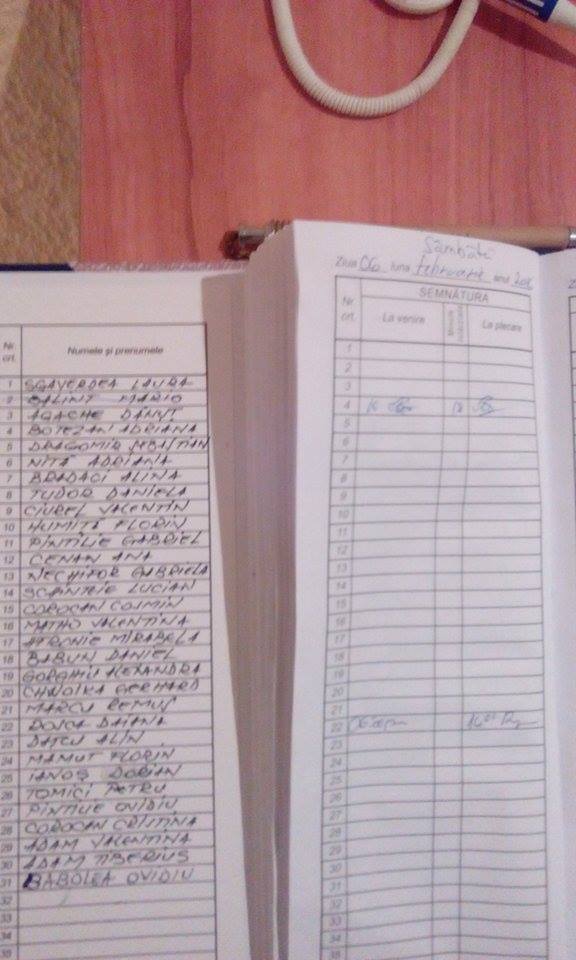 Nr. crt. Numele și prenumele
1 SGAVERDEA LAURA
2 BALINT MARIO
3 AGACHE DĂNUȚ
4 BOTEZAN ADRIANA
5 DRAGOMIR SEBASTIAN
6 NIȚĂ ADRIANA
7 BRADACI ALINA
8 TUDOR DANIELA
9 CIUREL VALENTIN
10 HUMIȚĂ FLORIN
11 PINTILIE GABRIEL
12 CENAN ANA
13 NECHIFOR GABRIELA
14 LUCIAN
15 COROCAN COSMIN
16 VALENTINA
17 MIRABELA
18 BABUN DANIEL
19 GORGHIU ALEXANDRA
20 GERHARD
21 MARCU REMUS
22 DOJCA DAIANA
23 DATCU ALIN
24 MAMUT FLORIN
25 IANOȘ DORIAN
26 TOMICI PETRU
27 PINTILIE OVIDIU
28 COROCAN CRISTINA
29 ADAM VALENTINA
30 ADAM TIBERIUS
31 BABOLEA OVIDIU
32
33
34
35
Sâmbătă
Ziua 06 luna februarie anul
Nr. crt. SEMNĂTURA
La venire La plecare
1
2
3
4 16 18
5
6
7
8
9
10
11
12
13
14
15
16
17
18
19
20
21
22
23
24
25
26
27
28
29
30
31
32
33
34
35